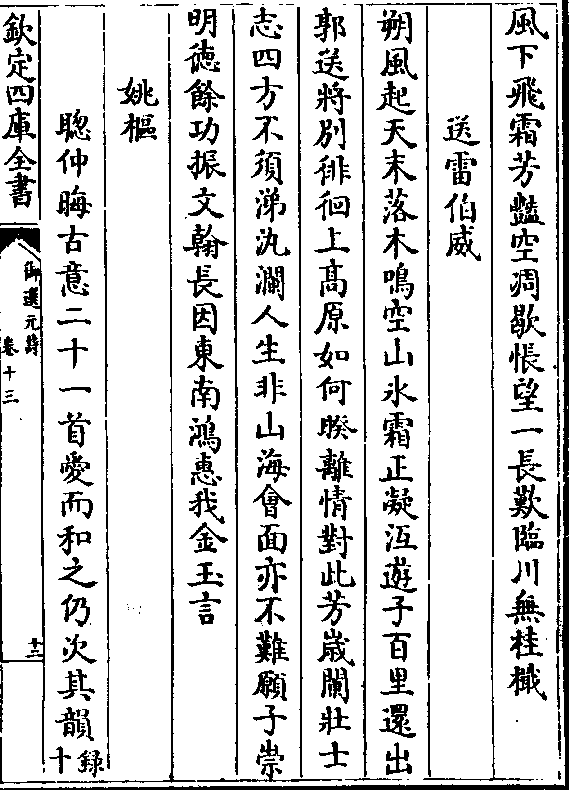 風下飛霜芳豔空凋歇悵望一長歎臨川無桂檝
送雷伯威
朔風起天末落木鳴空山氷霜正凝沍遊子百里還出
郭送將別徘徊上髙原如何暌離情對此芳嵗闌壯士
志四方不須涕汍瀾人生非山海會面亦不難願子崇
明徳餘功振文翰長因東南鴻惠我金玉言
姚樞
聰仲晦古意二十一首愛而和之仍次其韻錄十
欽定四庫全書
御選元詩
卷十三
十二